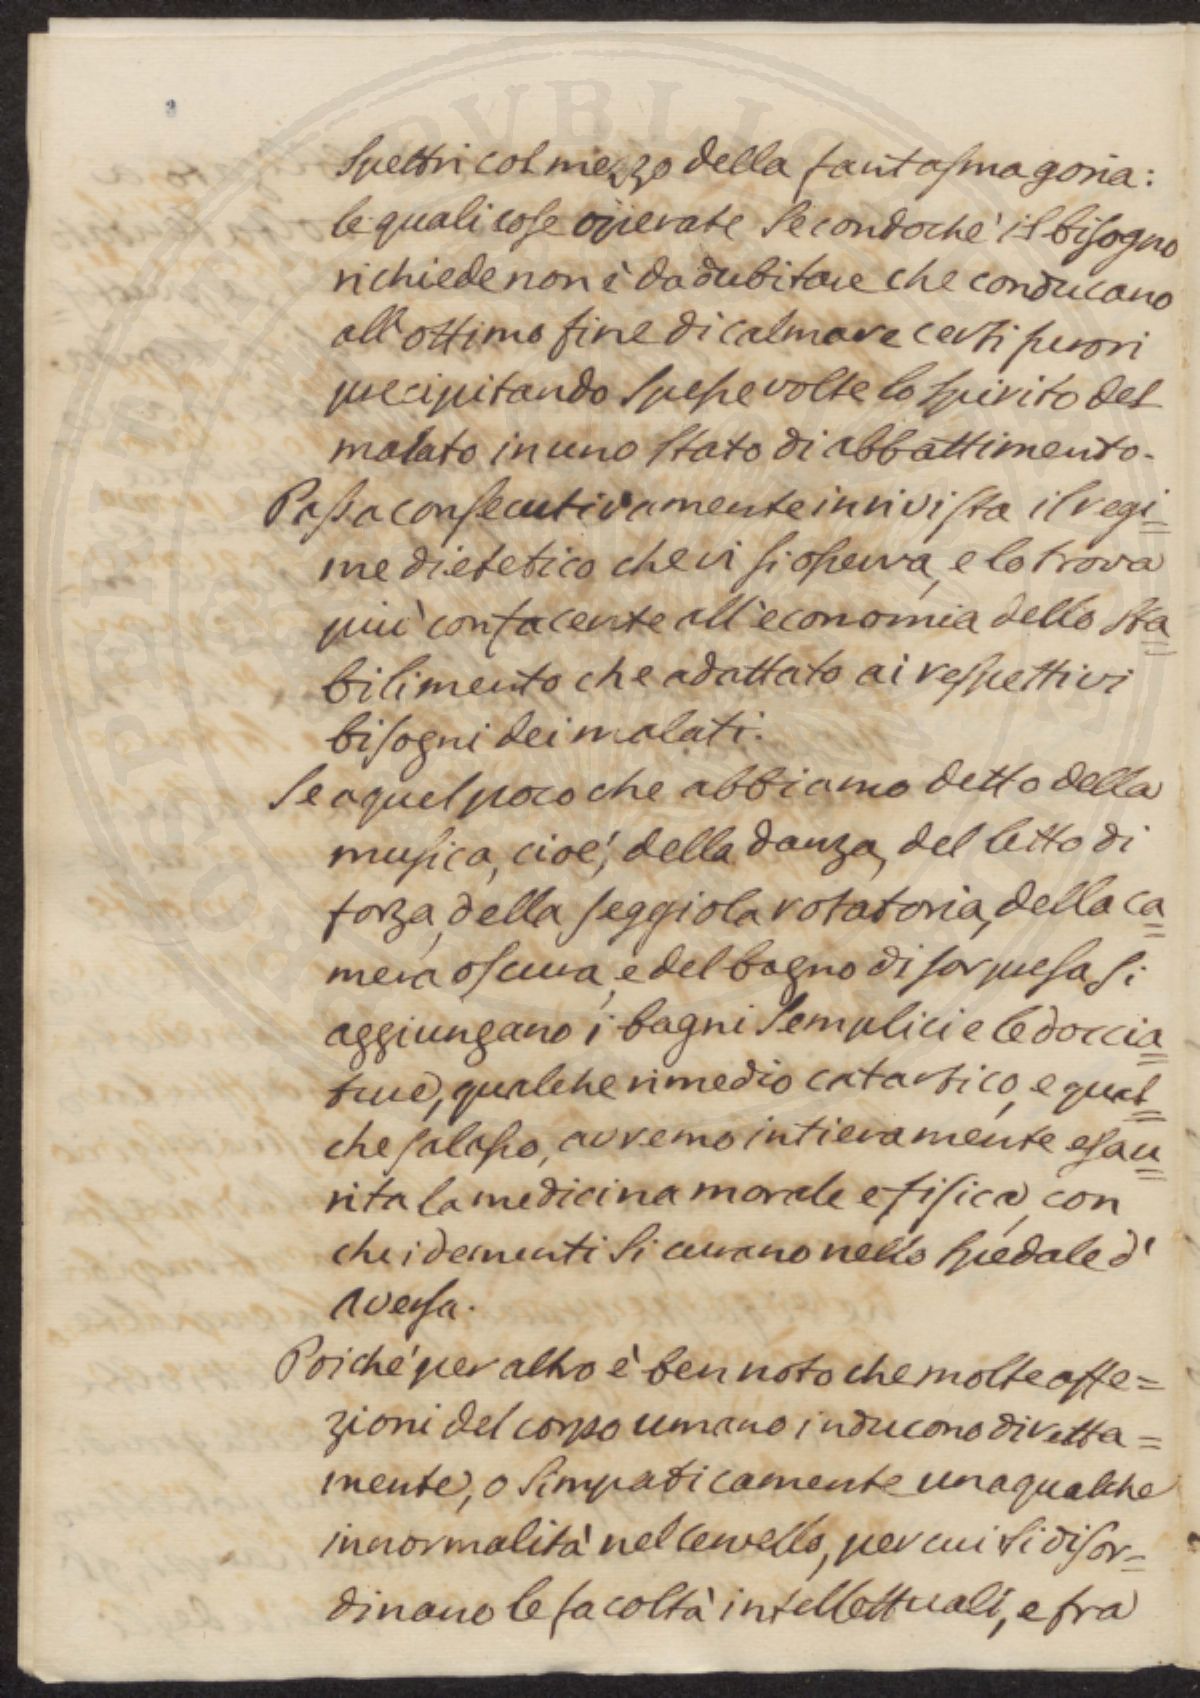 spettri col mezzo della fantasmagoria:
le quali cose operate secondochè il bisogno
richiede non è da dubitare che conducano
all'ottimo fine di calmare certi furori
precipitando spesse volte lo spirito del
malato in uno stato di abbattimento.
Passa consecutivamente in rivista il regi=
me dietetico che vi si osserva, e lo trova
più confacente all'economia dello sta=
bilimento che adattato ai respettivi
bisogni dei malati.
Se a quel poco che abbiamo detto della
musica, cioè, della danza, del letto di
forza, della seggiola rotatoria, della ca=
mera oscura, e del bagno di sorpresa si
aggiungano i bagni semplici e le doccia=
ture, qualche rimedio catartico, e qual=
che salasso, avremo intieramente esau=
rita la medicina morale e fisica, con
che i dementi si curano nello spedale d'
Aversa.
Poichè per altro è ben noto che molte affe=
zioni del corpo umano inducono diretta=
mente, o simpaticamente una qualche
innormalità nel cervello, per cui si disor=
dinano le facoltà intellettuali, e fra